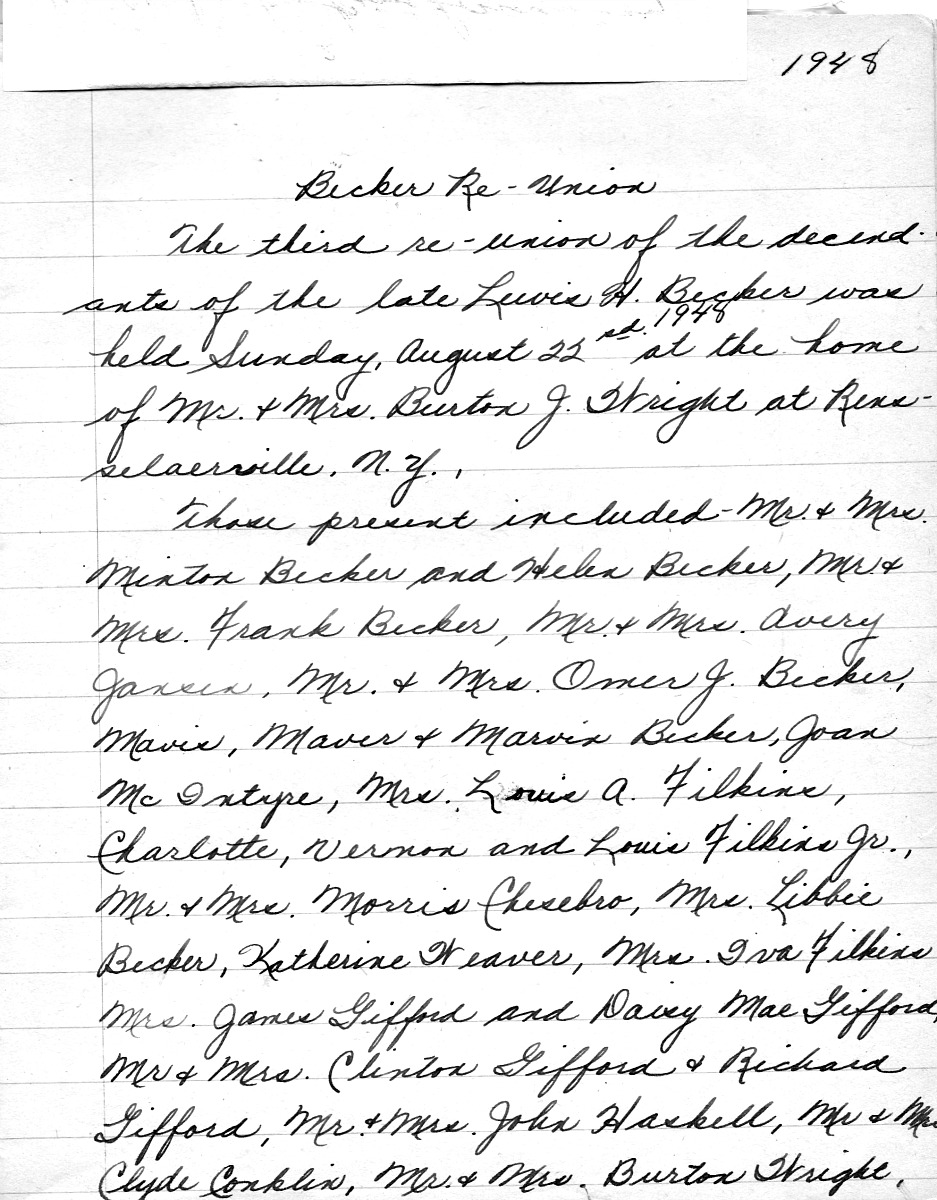 1948
Becker Re-Union
The third re-union of the decend-
ants of the late Lewis H. Becker was
held Sunday, August 22nd. 1948 at the home
of Mr. & Mrs. Burton J. Wright at Rens-
selaerville, N.Y.,
Those present included - Mr. & Mrs.
Minton Becker and Helen Becker, Mr. &
Mrs. Frank Becker, Mr. & Mrs. Avery
Jansen, Mr. & Mrs. Omer J. Becker,
Mavis, Maver & Marvin Becker, Joan
Mc Intyre, Mrs. Louis A. Filkins,
Charlotte, Vernon and Louis Filkins Jr.,
Mr. & Mrs. Morris Chesebro, Mrs. Libbie
Becker, Katherine Weaver, Mrs. Iva Filkins
Mrs. James Gifford and Daisy Mae Gifford,
Mr & Mrs. Clinton Gifford & Richard
Gifford, Mr. & Mrs. John Haskell, Mr & Mrs
Clyde Conklin, Mr. & Mrs. Burton Wright,